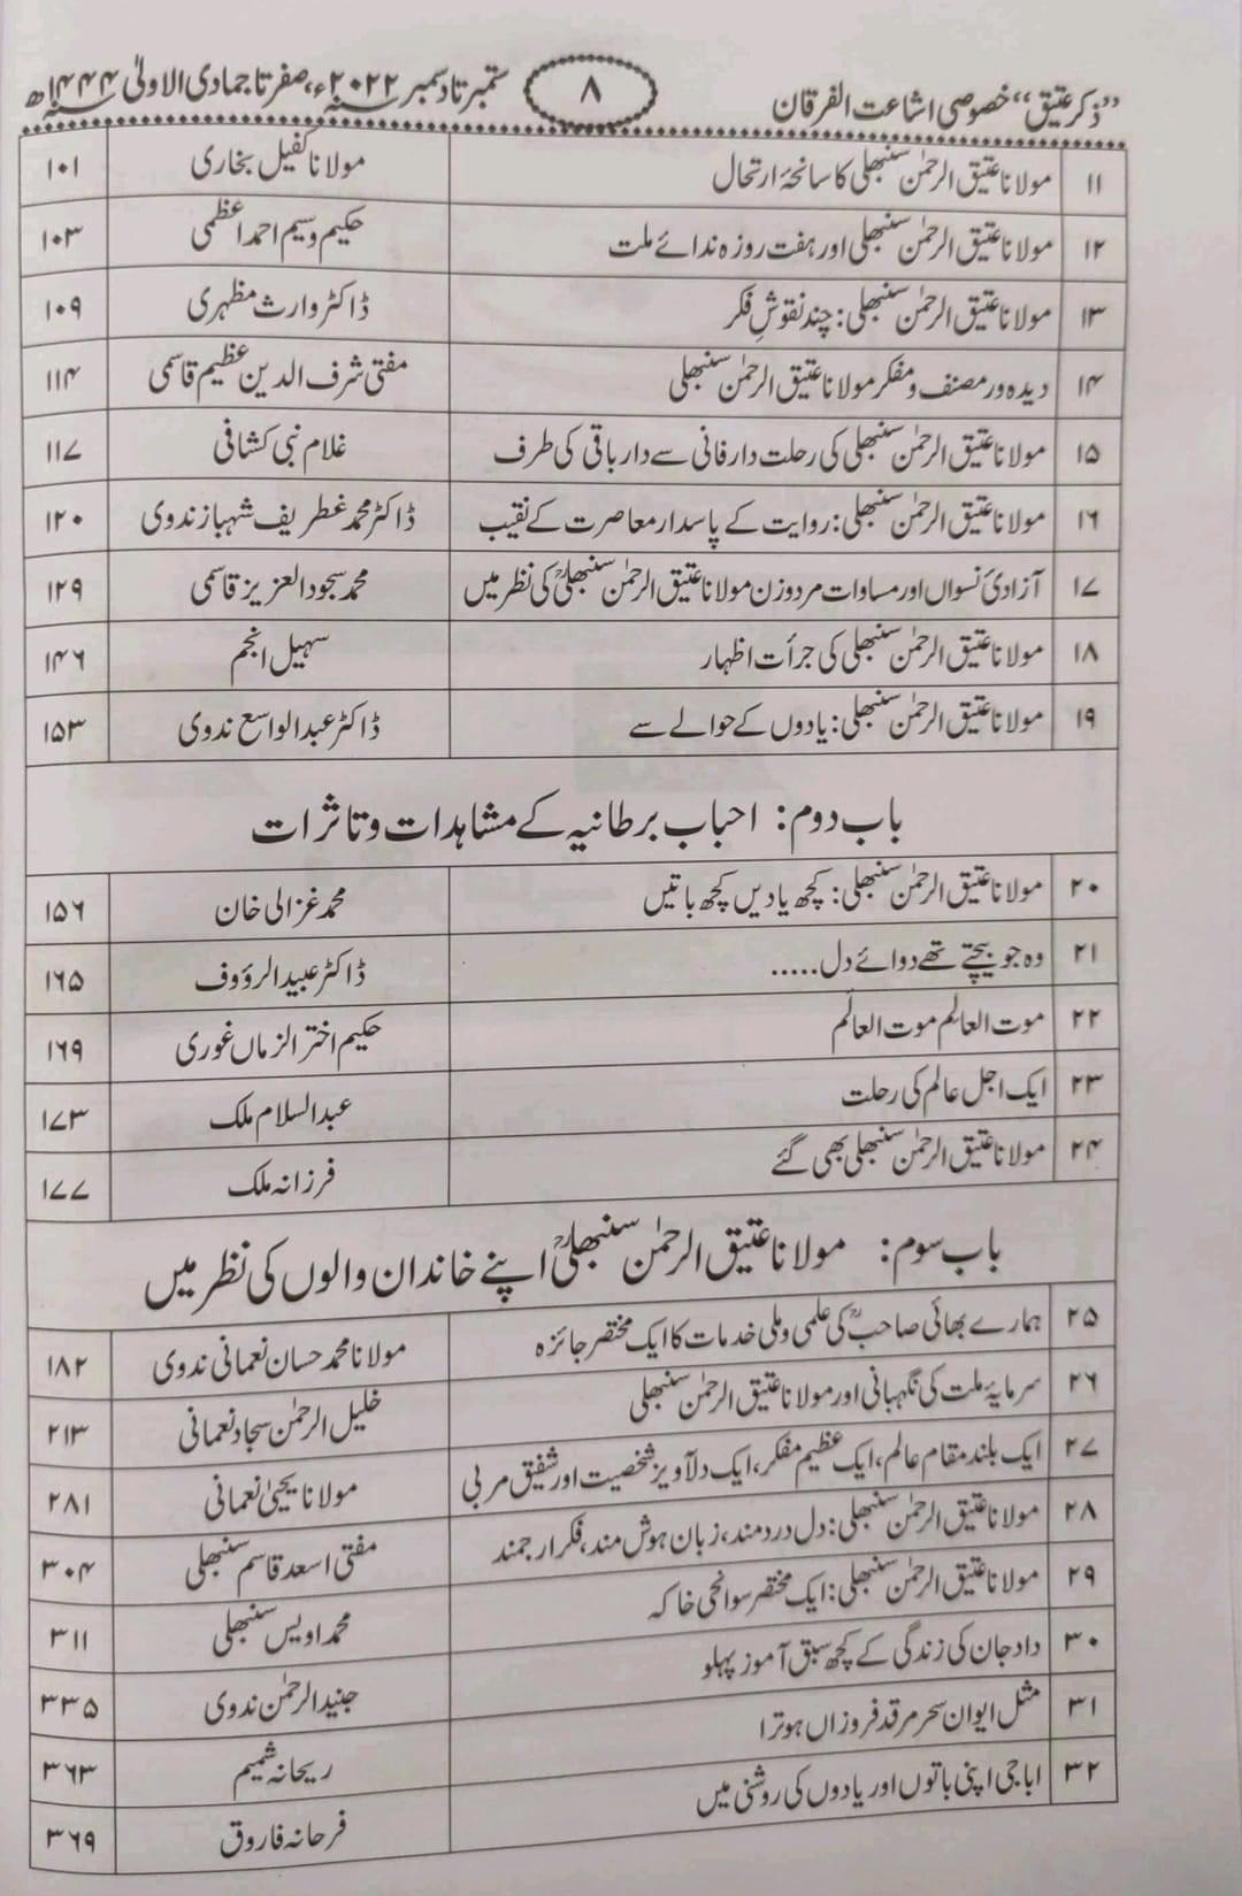 ”ذکر عتیق“ خصوصی اشاعت الفرقان ۸ ستمبر تا دسمبر ۲۰۲۲ء، صفر تا جمادی الاولیٰ ۱۴۴۴ھ
۱۱ مولانا عتیق الرحمٰن سنبھلی کا سانحۂ ارتحال مولانا کفیل بخاری ۱۰۱
۱۲ مولانا عتیق الرحمٰن سنبھلی اور ہفت روزہ ندائے ملت حکیم وسیم احمد اعظمی ۱۰۳
۱۳ مولانا عتیق الرحمٰن سنبھلی: چند نقوشِ فکر ڈاکٹر وارث مظہری ۱۰۹
۱۴ دیدہ ور مصنف و مفکر مولانا عتیق الرحمٰن سنبھلی مفتی شرف الدین عظیم قاسمی ۱۱۴
۱۵ مولانا عتیق الرحمٰن سنبھلی کی رحلت دار فانی سے دار باقی کی طرف غلام نبی کشافی ۱۱۷
۱۶ مولانا عتیق الرحمٰن سنبھلی: روایت کے پاسدار معاصرت کے نقیب ڈاکٹر محمد غطریف شہباز ندوی ۱۲۰
۱۷ آزادیٔ نسواں اور مساوات مرد وزن مولانا عتیق الرحمٰن سنبھلیؒ کی نظر میں محمد سجود العزیز قاسمی ۱۲۹
۱۸ مولانا عتیق الرحمٰن سنبھلی کی جرأت اظہار سہیل انجم ۱۴۶
۱۹ مولانا عتیق الرحمٰن سنبھلی: یادوں کے حوالے سے ڈاکٹر عبدالواسع ندوی ۱۵۳
باب دوم: احباب برطانیہ کے مشاہدات و تاثرات
۲۰ مولانا عتیق الرحمٰن سنبھلی: کچھ یادیں کچھ باتیں محمد غزالی خان ۱۵۶
۲۱ وہ جو بیچتے تھے دوائے دل..... ڈاکٹر عبید الرؤوف ۱۶۵
۲۲ موت العالِم موت العالَم حکیم اختر الزماں غوری ۱۶۹
۲۳ ایک اجل عالم کی رحلت عبدالسلام ملک ۱۷۳
۲۴ مولانا عتیق الرحمٰن سنبھلی بھی گئے فرزانہ ملک ۱۷۷
باب سوم: مولانا عتیق الرحمٰن سنبھلیؒ اپنے خاندان والوں کی نظر میں
۲۵ ہمارے بھائی صاحبؒ کی علمی و ملی خدمات کا ایک مختصر جائزہ مولانا محمد حسان نعمانی ندوی ۱۸۲
۲۶ سرمایۂ ملت کی نگہبانی اور مولانا عتیق الرحمٰن سنبھلی خلیل الرحمٰن سجاد نعمانی ۲۱۳
۲۷ ایک بلند مقام عالم، ایک عظیم مفکر، ایک دلآویز شخصیت اور شفیق مربی مولانا یحییٰ نعمانی ۲۸۱
۲۸ مولانا عتیق الرحمٰن سنبھلی: دل درد مند، زبان ہوش مند، فکر ارجمند مفتی اسعد قاسم سنبھلی ۳۰۴
۲۹ مولانا عتیق الرحمٰن سنبھلی: ایک مختصر سوانحی خاکہ محمد اویس سنبھلی ۳۱۱
۳۰ داد جان کی زندگی کے کچھ سبق آموز پہلو جنید الرحمٰن ندوی ۳۳۵
۳۱ مثل ایوان سحر مرقد فروزاں ہو ترا ریحانہ شمیم ۳۶۳
۳۲ ابا جی اپنی باتوں اور یادوں کی روشنی میں فرحانہ فاروق ۳۶۹